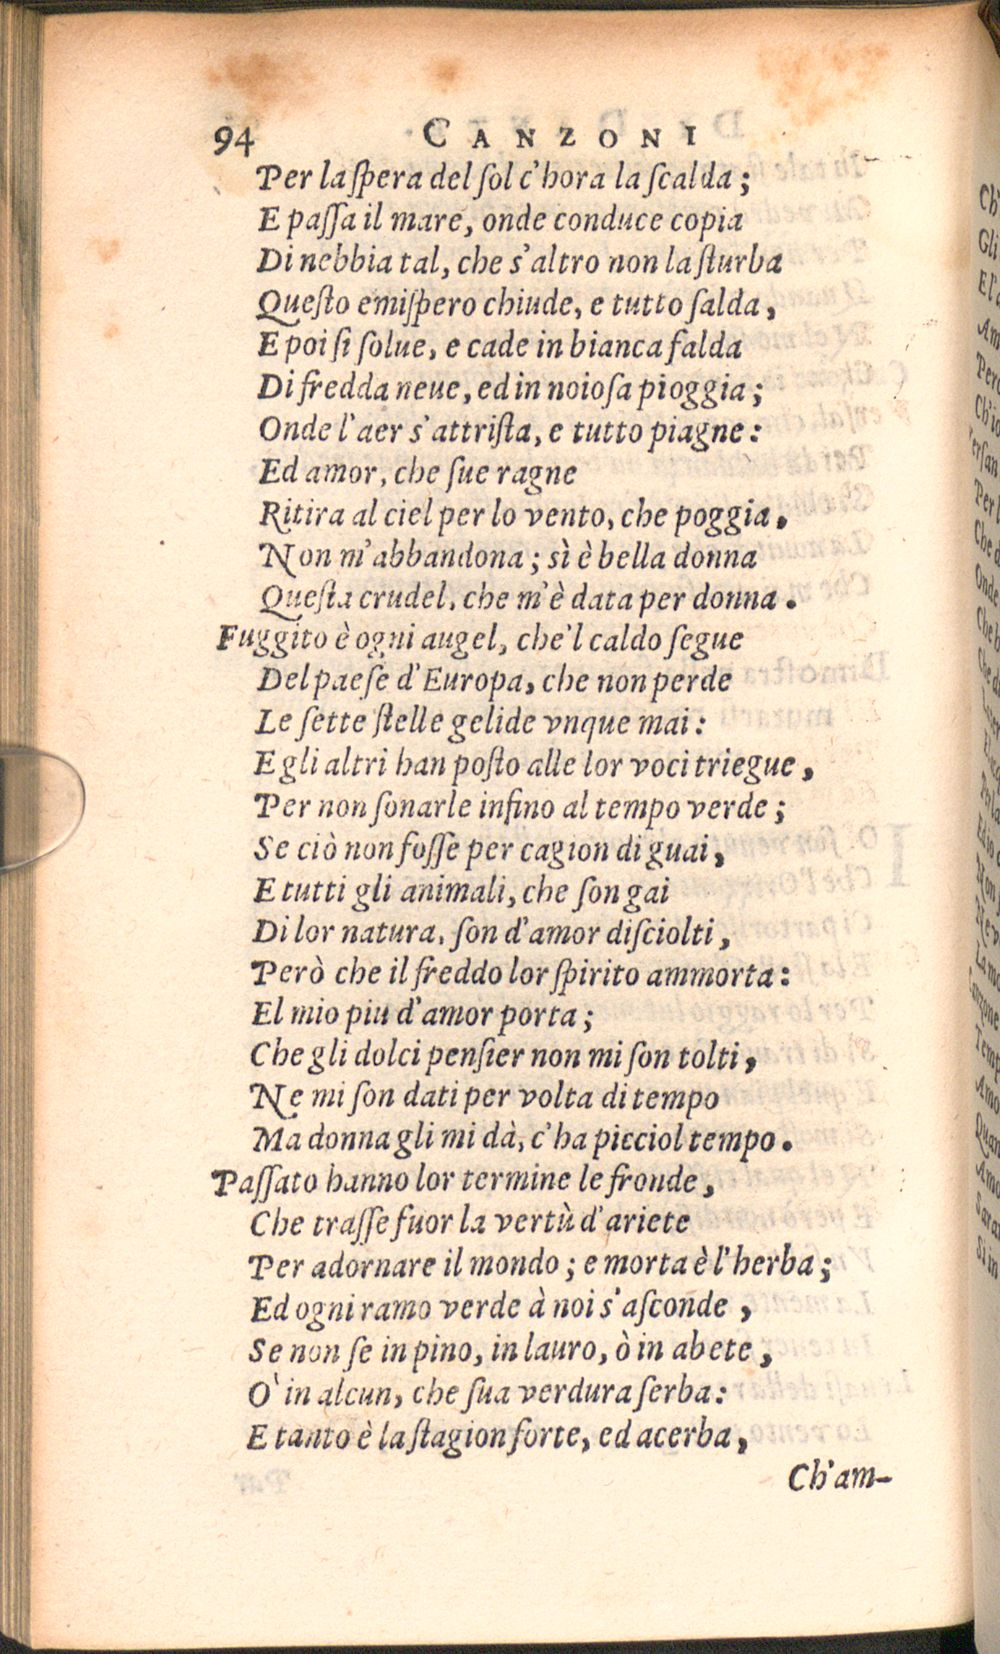 94 CANZONI
Per la ſpera del ſol c'hora la ſcalda;
E paſſa il mare, onde conduce copia
Di nebbia tal, che s'altro non la ſturba
Queſto emiſpero chiude, e tutto ſalda,
E poi ſi ſolue, e cade in bianca falda
Di fredda neue, ed in noioſa pioggia;
Onde l'aer s'attriſta, e tutto piagne:
Ed amor, che ſue ragne
Ritira al ciel per lo vento, che poggia.
Non m'abbandona; sì è bella donna
Queſta crudel, che m'è data per donna.
Fuggito è ogni augel, che'l caldo ſegue
Del paeſe d'Europa, che non perde
Le ſette ſtelle gelide vnque mai:
E gli altri han poſto alle lor voci triegue,
Per non ſonarle infino al tempo verde;
Se ciò non foſſe per cagion di guai,
E tutti gli animali, che ſon gai
Di lor natura, ſon d'amor diſciolti,
Però che il freddo lor ſpirito ammorta:
El mio piu d'amor porta;
Che gli dolci penſier non mi ſon tolti,
Ne mi ſon dati per volta di tempo
Ma donna gli mi dà, c'ha picciol tempo.
Paſſato hanno lor termine le fronde,
Che traſſe fuor la vertù d'ariete
Per adornare il mondo; e morta è l'herba;
Ed ogni ramo verde à noi s'aſconde,
Se non ſe in pino, in lauro, ò in abete,
O' in alcun, che ſua verdura ſerba:
E tanto è la ſtagion forte, ed acerba,
Ch'am-